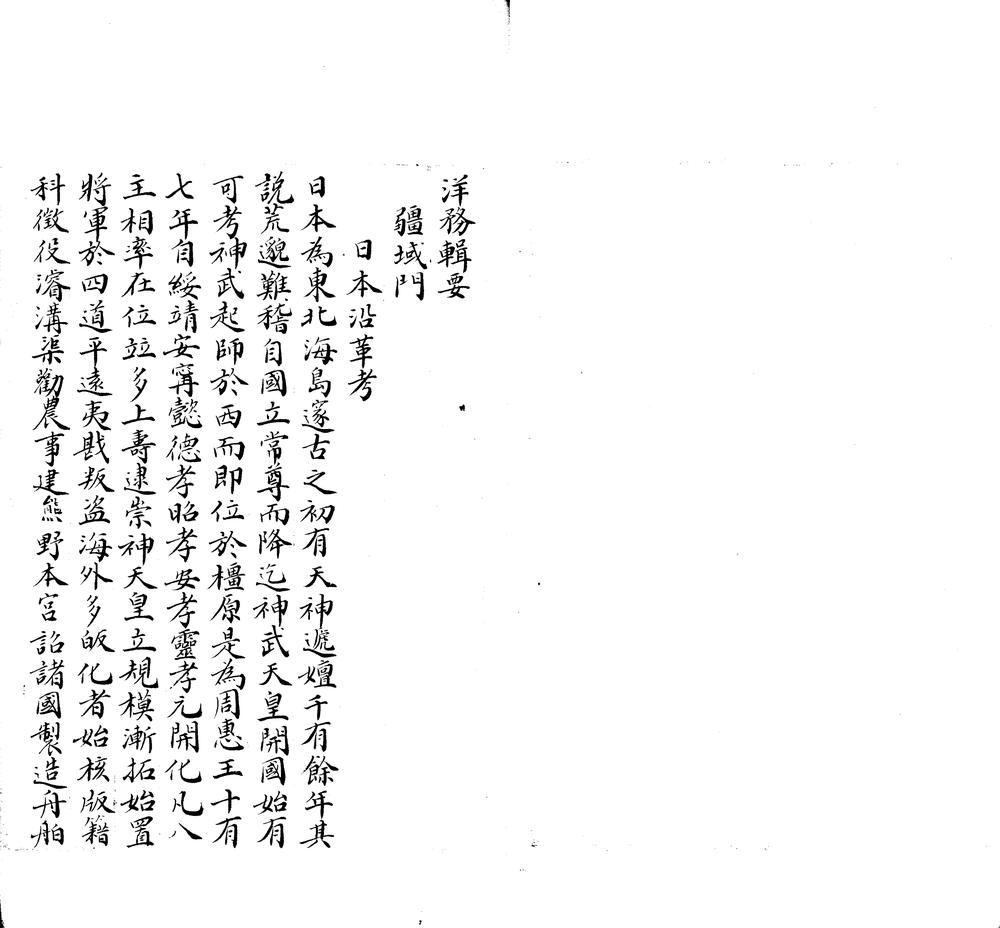 洋務輯要
疆域門
日本沿革考
日本為東北海島邃古之初有天神遞嬗千有餘年其
說荒邈難稽自國立常尊而降迄神武天皇開國始有
可考神武起師於西而即位於橿原是為周惠王十有
七年自綏靖安寧懿德孝昭孝安孝靈孝元開化凡八
主相率在位竝多上壽逮崇神天皇立規模漸拓始置
將軍於四道平遠夷戡叛盜海外多皈化者始核版籍
科徵役濬溝渠勸農事建熊野本宮詔諸國製造舟舶